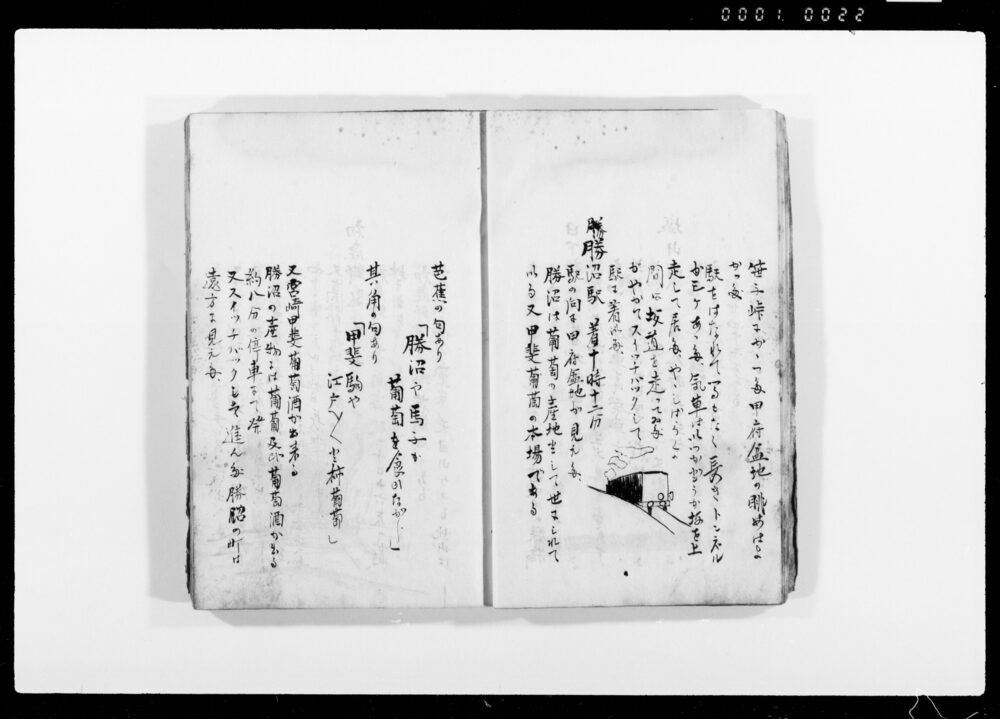 0001 0022
笹子峠にかゝつた甲府盆地の眺めはよ
かつた
駅をはなれて間もなく長きトンネル
が三ケあつた、気車はいつか坂を上
走して居た、やゝしばらくの
間に坂道を走つて
がやがてスイツチバツクして
駅に着いた、
勝沼駅 着十時十二分
駅の向に甲府盆地が見えた、
勝沼は葡萄の土産地として世にしられて
いる又甲斐葡萄の本場である
芭蕉の句あり
「勝沼や馬子が
葡萄を食ひながし
其角の句あり
「甲斐駒や
江戸へ〳〵と柿葡萄
又宮崎甲斐葡萄酒が出来る
勝沼の産物には葡萄及び葡萄酒が出る
約八分の停車にて発
又スイツチバツク進んだ勝沼の町は
遠方に見えた、